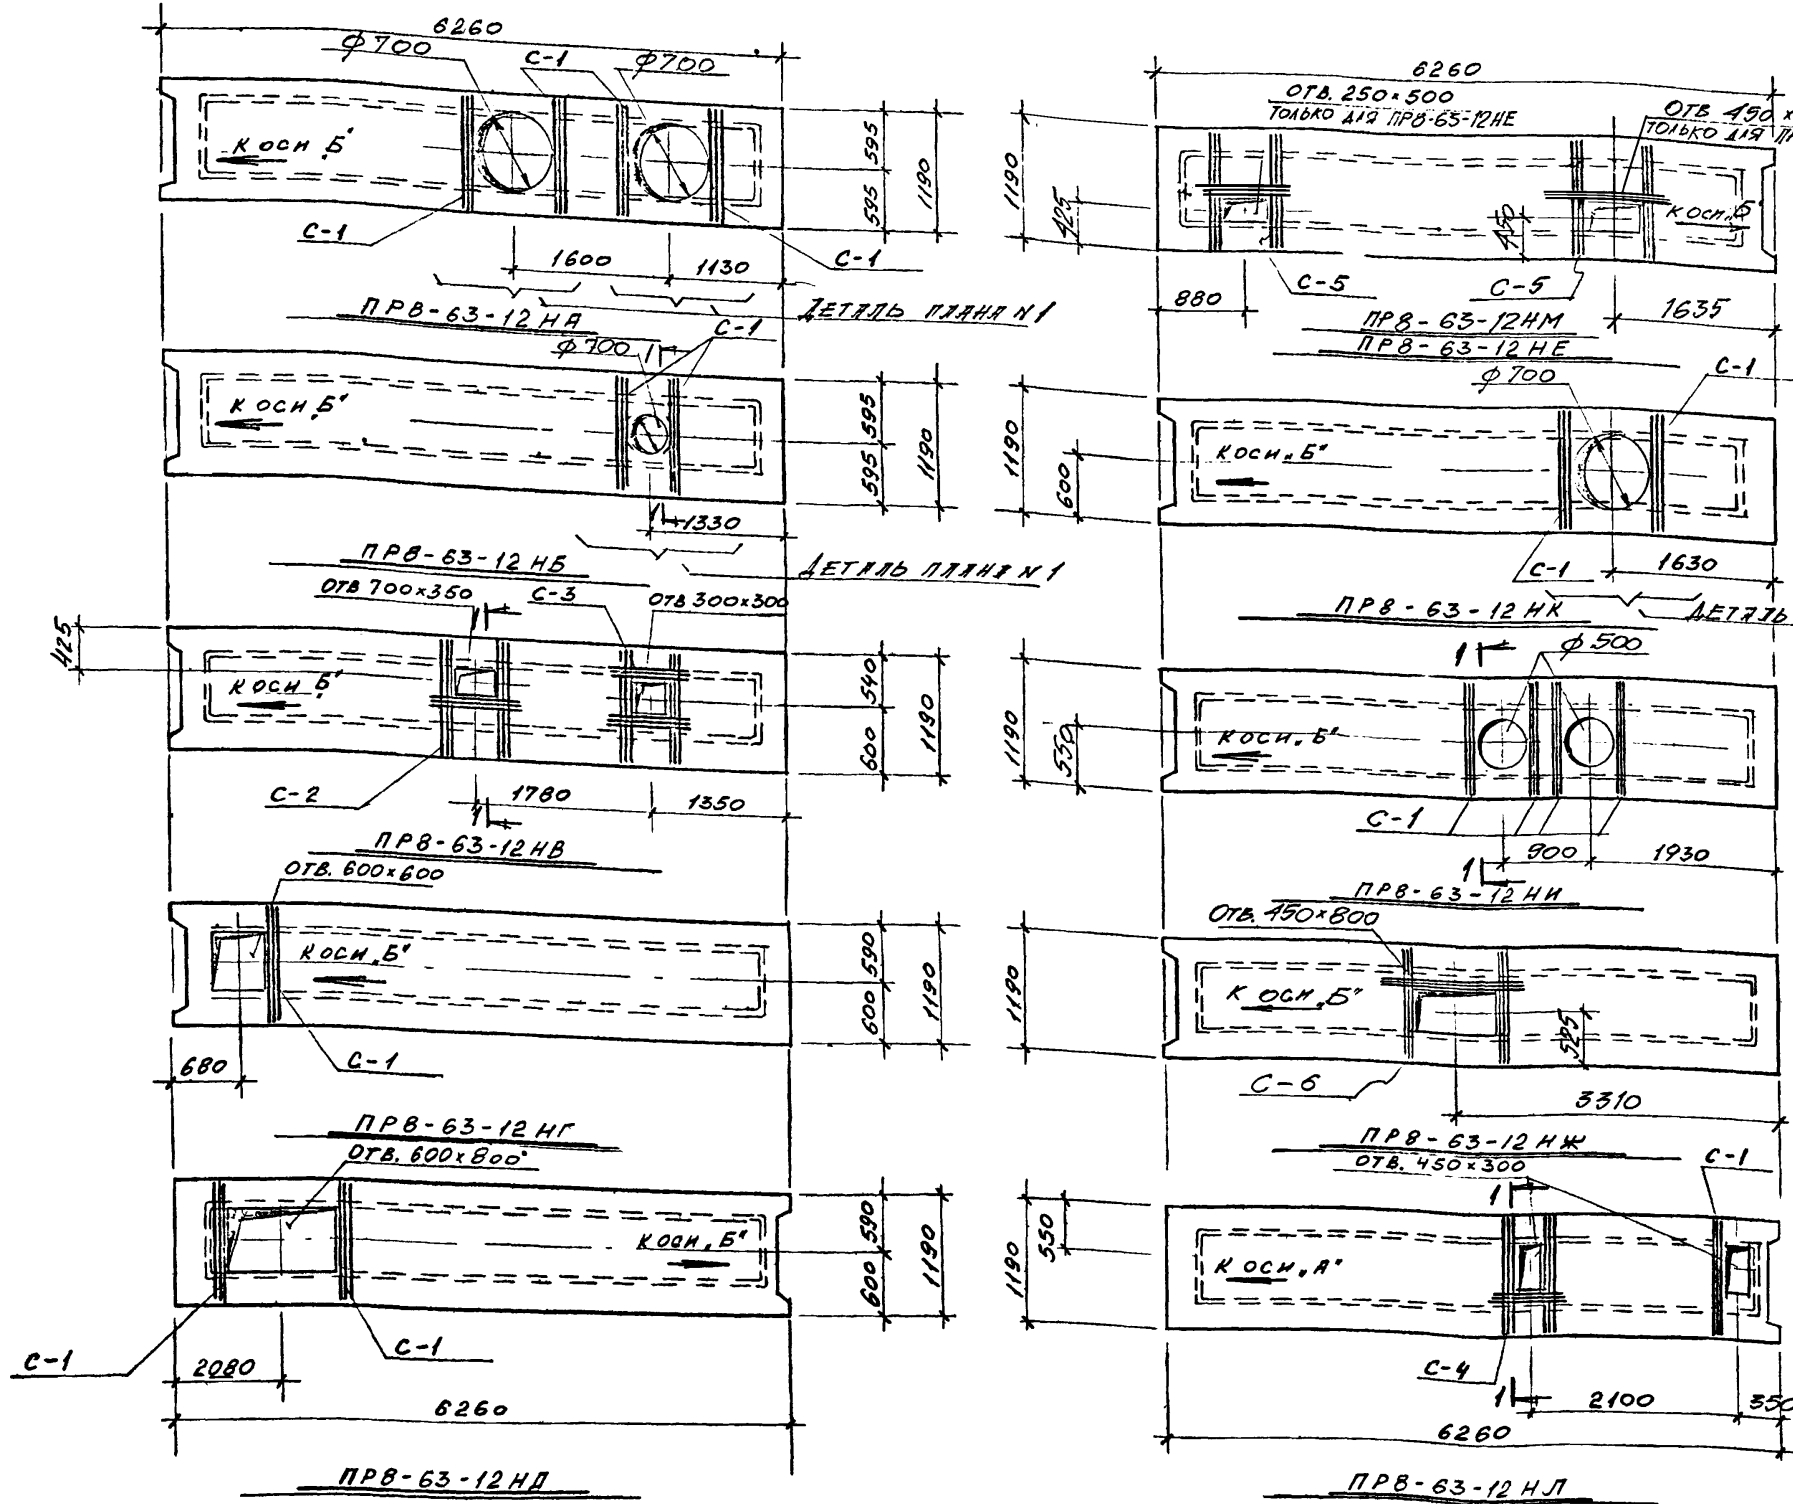 6260
φ700
С-1
φ700
К ОСИ „Б"
595
595
1190
С-1
1600
1130
С-1
ПР8-63-12НА
ДЕТАЛЬ ПЛАНА N1
С-1
φ700
1
К ОСИ „Б"
595
595
1190
1
1330
ПР8-63-12НБ
ДЕТАЛЬ ПЛАНА N1
ОТВ 700×350
С-3
ОТВ 300×300
1
425
К ОСИ „Б"
540
600
1190
С-2
1780
1350
1
ПР8-63-12НВ
ОТВ. 600×600
К ОСИ „Б"
590
600
1190
680
С-1
ПР8-63-12НГ
ОТВ. 600×800
К ОСИ „Б"
590
600
1190
С-1
С-1
2080
6260
ПР8-63-12НД
6260
ОТВ. 250×500
ТОЛЬКО ДЛЯ ПР8-63-12НЕ
ОТВ 450×
ТОЛЬКО ДЛЯ
1190
425
450
К ОСИ „Б"
880
С-5
С-5
1635
ПР8-63-12НМ
ПР8-63-12НЕ
φ700
С-1
1190
600
К ОСИ „Б"
С-1
1630
ПР8-63-12НК
ДЕТАЛЬ
1
φ500
1190
550
К ОСИ „Б"
С-1
900
1930
1
ПР8-63-12НИ
ОТВ. 450×800
1190
К ОСИ „Б"
525
С-6
3310
ПР8-63-12НЖ
ОТВ. 450×300
С-1
1
1190
550
К ОСИ „А"
С-4
1
2100
350
6260
ПР8-63-12НЛ